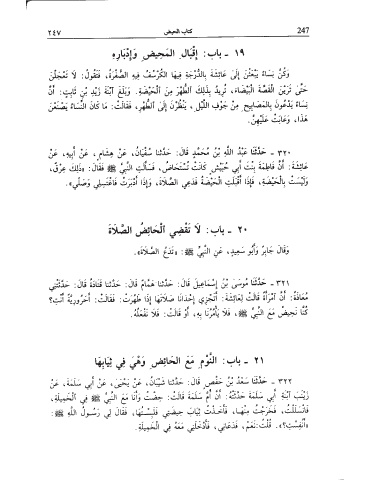 ٢٤٧ كتاب الحيض 247
١٩ - باب: إِقْبَالِ المَحِيضِ وَإِدْبَارِهِ
وَكُنَّ نِسَاءٌ يَبْعَثْنَ إِلَى عَائِشَةَ بِالدُّرْجَةِ فِيهَا الكُرْسُفُ فِيهِ الصُّفْرَةُ، فَتَقُولُ: لَا تَعْجَلْنَ
حَتَّى تَرَيْنَ القَصَّةَ البَيْضَاءَ، تُرِيدُ بِذَلِكَ الطُّهْرَ مِنَ الْحَيْضَةِ. وَبَلَغَ ابْنَةَ زَيْدِ بْنِ ثَابِتٍ: أَنَّ
نِسَاءً يَدْعُونَ بِالمَصَابِيحِ مِنْ جَوْفِ اللَّيْلِ، يَنْظُرْنَ إِلَى الطُّهْرِ، فَقَالَتْ: مَا كَانَ النِّسَاءُ يَصْنَعْنَ
هَذَا، وَعَابَتْ عَلَيْهِنَّ.
٣٢٠ - حَدَّثَنَا عَبْدُ اللَّهِ بْنُ مُحَمَّدٍ قَالَ: حَدَّثَنَا سُفْيَانُ، عَنْ هِشَامٍ، عَنْ أَبِيهِ، عَنْ
عَائِشَةَ: أَنَّ فَاطِمَةَ بِنْتَ أَبِي حُبَيْشٍ كَانَتْ تُسْتَحَاضُ، فَسَأَلَتِ النَّبِيَّ ﷺ فَقَالَ: «ذَلِكِ عِرْقٌ،
وَلَيْسَتْ بِالْحَيْضَةِ، فَإِذَا أَقْبَلَتِ الْحَيْضَةُ فَدَعِي الصَّلَاةَ، وَإِذَا أَدْبَرَتْ فَاغْتَسِلِي وَصَلِّي».
٢٠ - باب: لَا تَقْضِي الْحَائِضُ الصَّلَاةَ
وَقَالَ جَابِرٌ وَأَبُو سَعِيدٍ، عَنِ النَّبِيِّ ﷺ: «تَدَعُ الصَّلَاةَ».
٣٢١ - حَدَّثَنَا مُوسَى بْنُ إِسْمَاعِيلَ قَالَ: حَدَّثَنَا هَمَّامٌ قَالَ: حَدَّثَنَا قَتَادَةُ قَالَ: حَدَّثَتْنِي
مُعَاذَةُ: أَنَّ امْرَأَةً قَالَتْ لِعَائِشَةَ: أَتَجْزِي إِحْدَانَا صَلَاتَهَا إِذَا طَهُرَتْ؟ فَقَالَتْ: أَحَرُورِيَّةٌ أَنْتِ؟
كُنَّا نَحِيضُ مَعَ النَّبِيِّ ﷺ، فَلَا يَأْمُرُنَا بِهِ، أَوْ قَالَتْ: فَلَا نَفْعَلُهُ.
٢١ - باب: النَّوْمِ مَعَ الحَائِضِ وَهْيَ فِي ثِيَابِهَا
٣٢٢ - حَدَّثَنَا سَعْدُ بْنُ حَفْصٍ قَالَ: حَدَّثَنَا شَيْبَانُ، عَنْ يَحْيَى، عَنْ أَبِي سَلَمَةَ، عَنْ
زَيْنَبَ ابْنَةِ أَبِي سَلَمَةَ حَدَّثَتْهُ: أَنَّ أُمَّ سَلَمَةَ قَالَتْ: حِضْتُ وَأَنَا مَعَ النَّبِيِّ ﷺ فِي الْخَمِيلَةِ،
فَانْسَلَلْتُ، فَخَرَجْتُ مِنْهَا، فَأَخَذْتُ ثِيَابَ حِيضَتِي فَلَبِسْتُهَا، فَقَالَ لِي رَسُولُ اللَّهِ ﷺ:
«أَنُفِسْتِ؟». قُلْتُ: نَعَمْ، فَدَعَانِي، فَأَدْخَلَنِي مَعَهُ فِي الْخَمِيلَةِ.